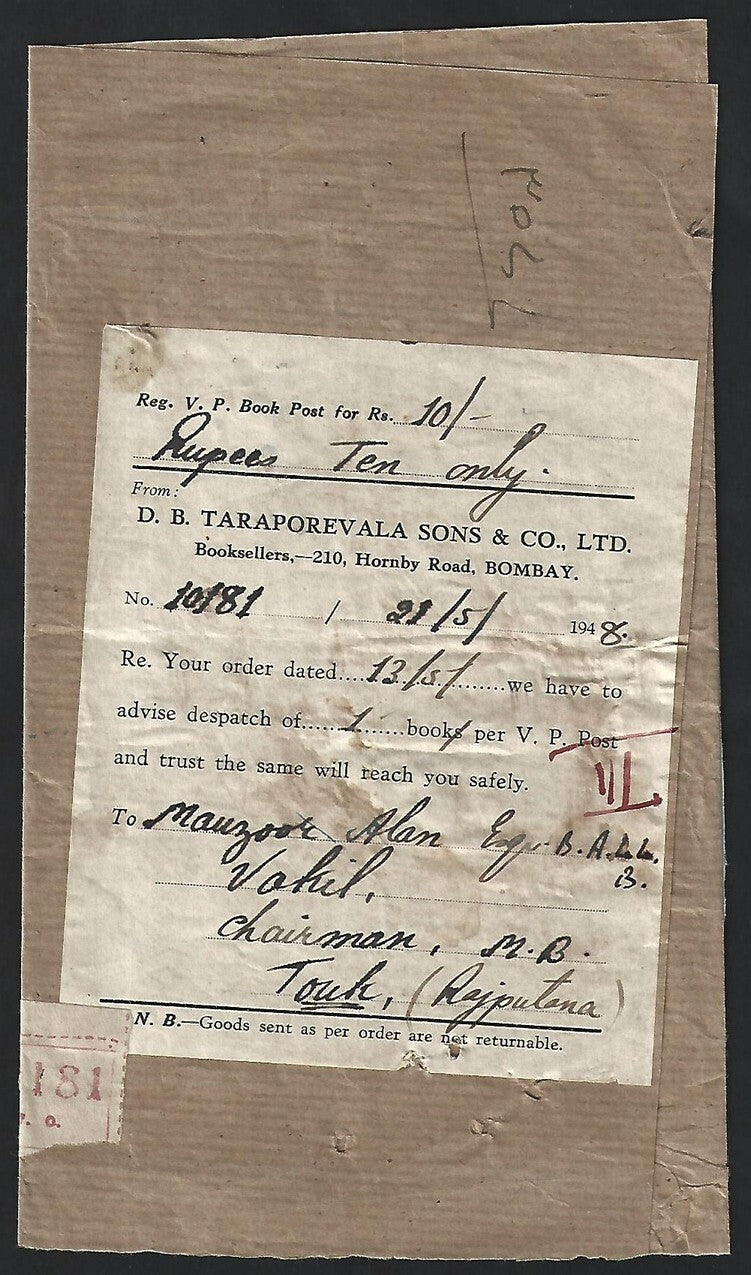 Reg. V. P. Book Post for Rs. 10/-
Rupees Ten only.
From:
D. B. TARAPOREVALA SONS & CO., LTD.
Booksellers,—210, Hornby Road, BOMBAY.
No. 10181 / 21/5/ 1948.
Re. Your order dated....13/5/........we have to
advise despatch of......1......books per V. P. Post
and trust the same will reach you safely.
III
To Manzoor Alan Esqr. B.A.LL.
B.
Vakil,
Chairman, M.B.
Tonk, (Rajputana)
N. B.—Goods sent as per order are not returnable.
181